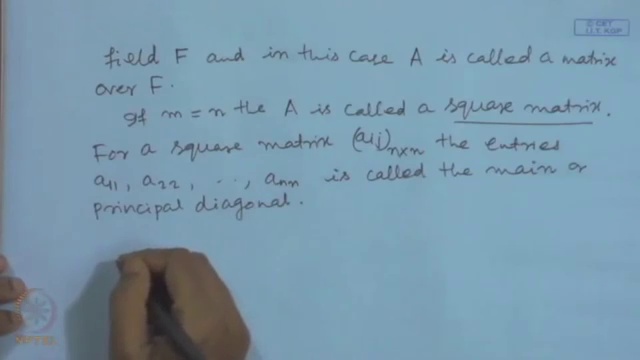 © CET
I.I.T. KGP
field F and in this case A is called a matrix
over F.
If m = n the A is called a square matrix.
For a square matrix (aij)n×n the entries
a11, a22, ..., ann is called the main or
principal diagonal.
NPTEL